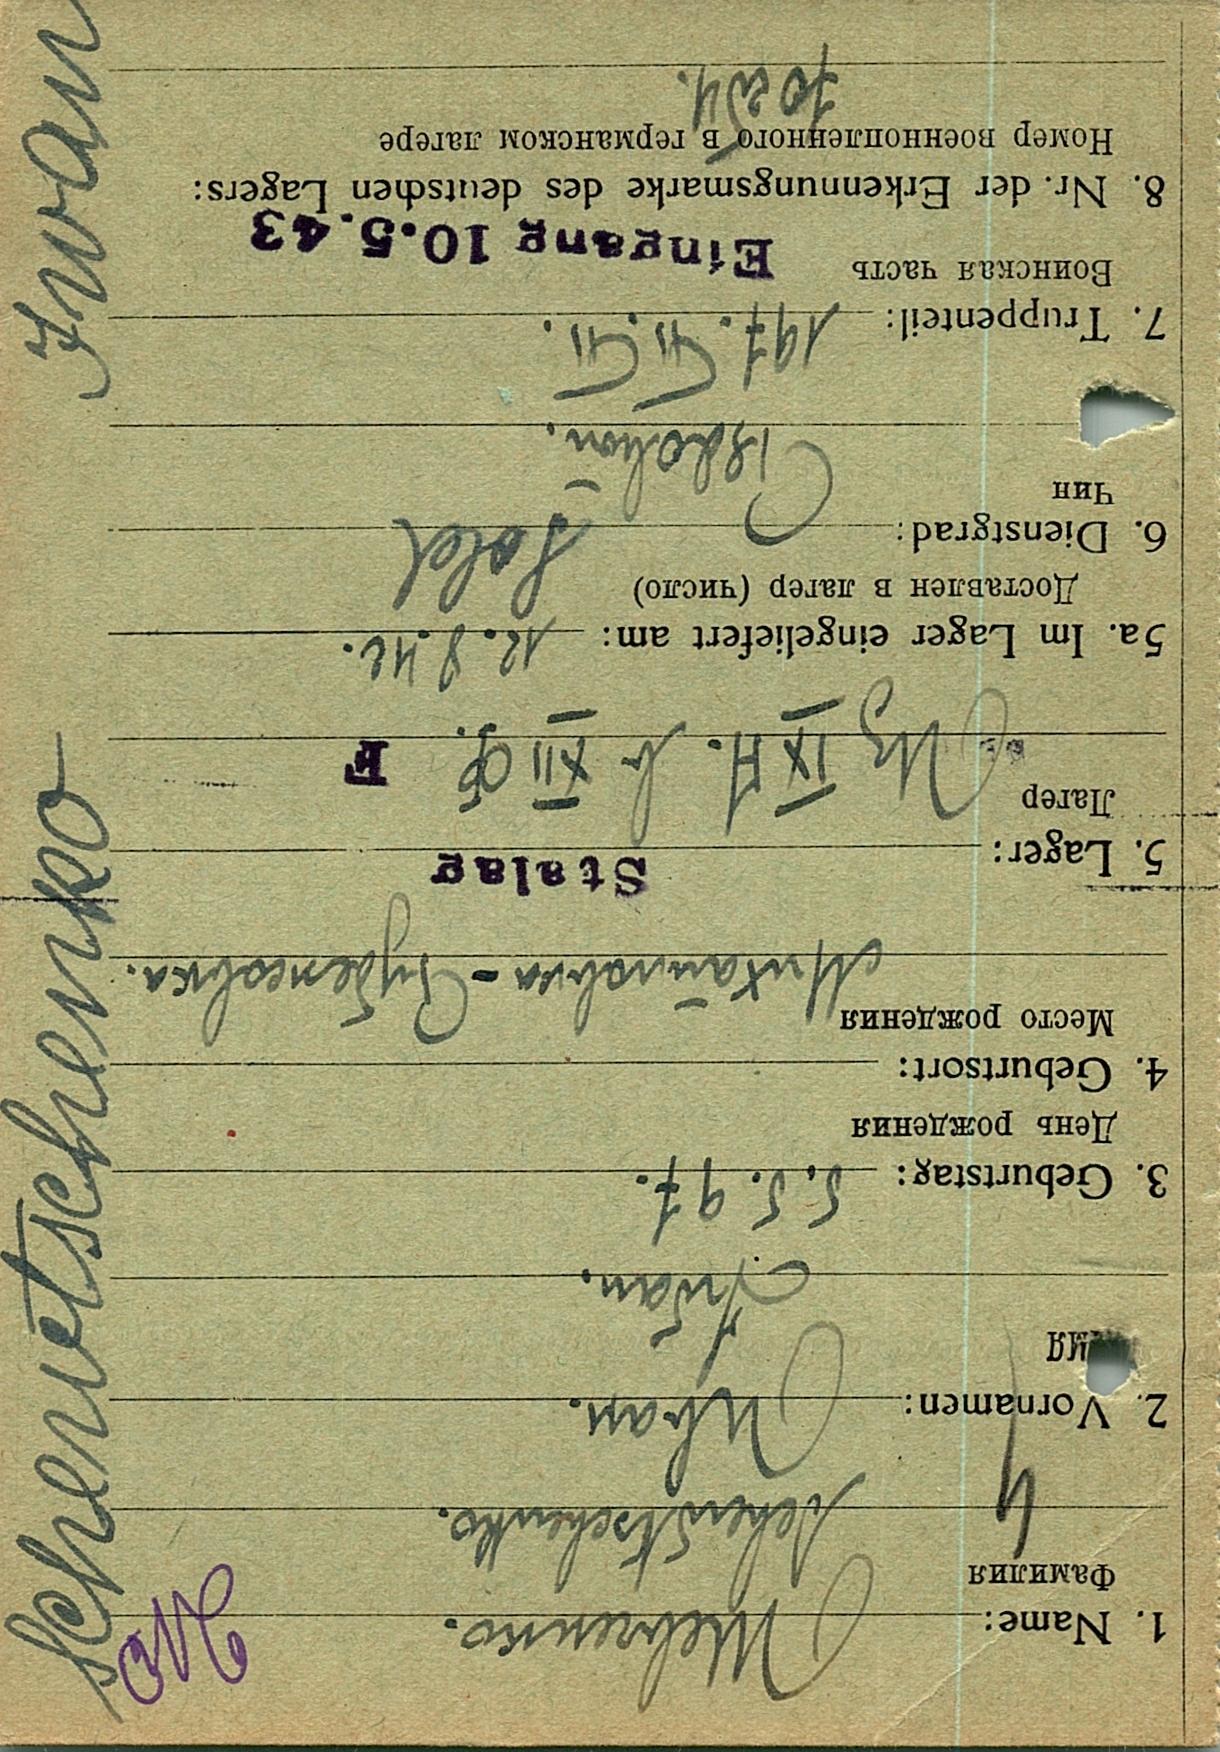 Schewtschenko Iwan
1. Name: Шевченко.
Фамилия Schewtschenko.
2. Vornamen: Иван.
Имя Iwan.
3. Geburtstag: 5.5.97.
День рождения
4. Geburtsort:
Место рождения
Михайловка-
5. Lager: Stalag
Лагер
Из IX А. в XII Ф. F
5a. Im Lager eingeliefert am: 12.8.42.
Доставлен в лагер (число)
6. Dienstgrad: Sold
Чин
7. Truppenteil: 197.
Воинская часть Eingang 10.5.43
8. Nr. der Erkennungsmarke des deutschen Lagers:
Номер военнопленного в германском лагере